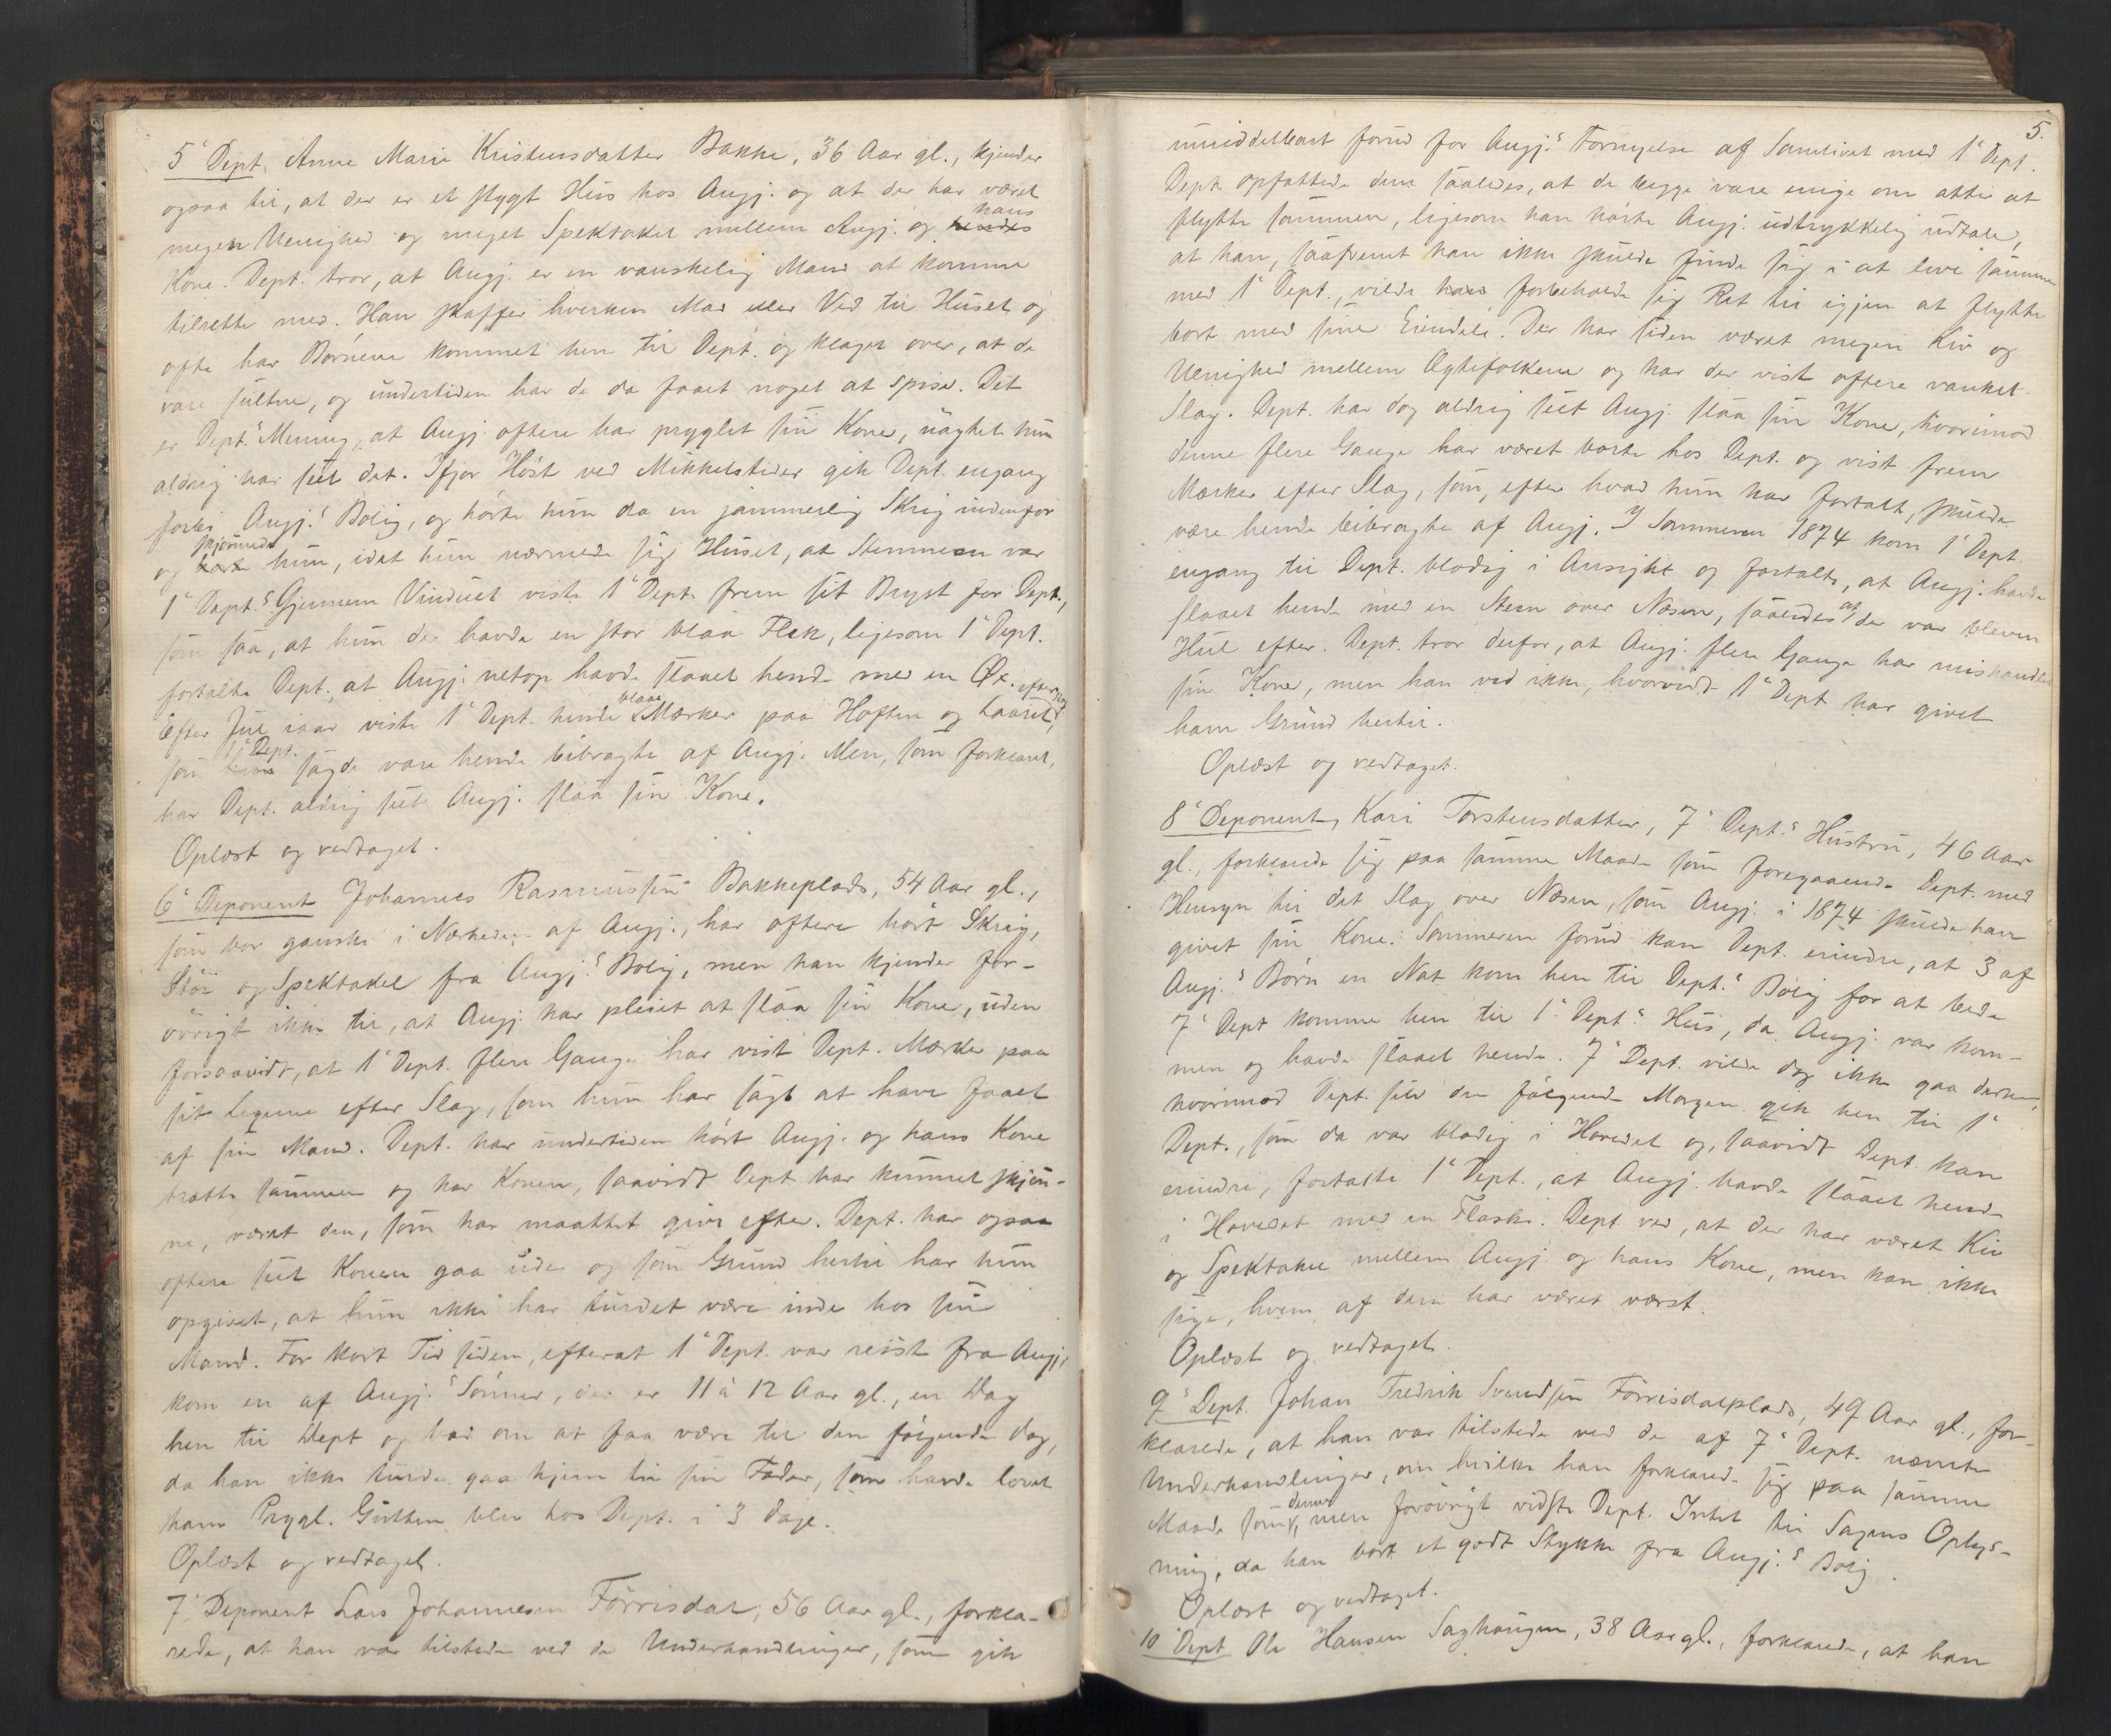 5' Dept. Anne Marie Kristensdatter Bakke, 36 Aar gl., kjender
ogsaa til, at der er et stygt Hus hos Angj. og at der har været
megen Uenighed og meget Spektakel mellem Angj. og hendes hans
Kone. Dept. tror, at Angj. er en vanskelig Mand at komme
tilrette med. Han skaffer hverken Mad eller Ved til Huset og
ofte har Børnene kommet hen til Dept. og klaget over, at de
vare sultne, og undertiden har de da faaet noget at spise. Det
er Dept.s Mening, at Angj. oftere har pryglet sin Kone, uagtet hun
aldrig har seet det. Ifjor Høst ved Mikkelstider gik Dept. engang
forbi Angj.s Bolig, og hørte hun da en jammerlig Skrig indenfor
og skjønnede hun, idet hun nærmede sig Huset, at Stemmen var
1' Dept.s Gjennem Vinduet viste 1' Dept. frem sit Bryst for Dept.,
som saa, at hun der havde en stor blaa Flek, ligesom 1' Dept.
fortalte Dept., at Angj. netop havde slaaet hende med en Øx.
Efter Jul iaar viste 1' Dept. hende blaae Mærker paa Hoften og Laaret,
som 1' Dept. sagde vare hende bibragte af Angj. Men, som forklaret,
har Dept. aldrig seet Angj. slaa sin Kone.
Oplæst og vedtaget.
6' Deponent Johannes Rasmussen Bakkeplads, 54 Aar gl.,
som bor ganske i Nærheden af Angj., har oftere hørt Skrig,
Støi og Spektakel fra Angj.s Bolig, men han kjender for-
øvrigt ikke til, at Angj. har pleiet at slaa sin Kone, uden
forsaavidt, at 1' Dept. flere Gange har vist Dept. Mærker paa
sit Legeme efter Slag, som hun har sagt at have faaet
af sin Mand. Dept. har undertiden hørt Angj. og hans Kone
trætte sammen og har Konen, saavidt Dept. har kunnet skjøn-
ne, været den, som har maattet give efter. Dept. har ogsaa
oftere seet Konen gaa ude og som Grund hertil har hun
opgivet, at hun ikke har turdet være inde hos sin
Mand. For kort Tid siden, efterat 1' Dept. var reist fra Angj.,
kom en af Angj.s Sønner, der er 11 à 12 Aar gl., en Dag
hen til Dept. og bad om at faa være til den følgende Dag,
da han ikke turde gaa hjem til sin Fader, som havde lovet
ham Prygl. Gutten blev hos Dept. i 3 Dage.
Oplæst og vedtaget.
7' Deponent Lars Johannesen Førrisdal, 56 Aar gl., forkla-
rede, at han var tilstede ved de Underhandlinger, som gik
5.
umiddelbart forud for Angj.s Fornyelse af Samlivet med 1' Dept.
Dept. opfattede dem saaledes, at de begge vare enige om atter at
flytte sammen, ligesom han hørte Angj. udtrykkelig udtale,
at han, saafremt han ikke skulde finde sig i at leve sammen
med 1' Dept., vilde have forbeholde sig Ret til igjen at flytte
bort med sine Eiendele. Der har siden været megen Kiv og
Uenighed mellem Ægtefolkene og har der vist oftere vanket
Slag. Dept. har dog aldrig seet Angj. slaa sin Kone, hvorimod
denne flere Gange har været borte hos Dept. og vist frem
Mærker efter Slag, som, efter hvad hun har fortalt, skulde
være hende bibragte af Angj. I Sommeren 1874 kom 1' Dept.
engang til Dept. blodig i Ansigtet og fortalte, at Angj. havde
slaaet hende med en Sten over Næsen, saaledes at der var bleven
Hul efter. Dept. tror derfor, at Angj. flere Gange har mishandlet
sin Kone, men han ved ikke, hvorvidt 1' Dept. har givet
ham Grund hertil.
Oplæst og vedtaget.
8' Deponent, Kari Torstensdatter, 7' Dept.s Hustru, 46 Aar
gl., forklarede sig paa samme Maade som foregaaende Dept. med
Hensyn til det Slag over Næsen, som Angj. i 1874 skulde have
givet sin Kone. Sommeren forud kan Dept. erindre, at 3 af
Angj.s Børn en Nat kom hen til Dept.s Bolig for at bede
7' Dept. komme hen til 1' Dept.s Hus, da Angj. var kom-
men og havde slaaet hende. 7' Dept. vilde dog ikke gaa derhen,
hvorimod Dept. selv den følgende Morgen gik hen til 1'
Dept., som da var blodig i Hovedet og, saavidt Dept. kan
erindre, fortalte 1' Dept., at Angj. havde slaaet hende
i Hovedet med en Flaske. Dept. ved, at der har været Kiv
og Spektakel mellem Angj. og hans Kone, men kan ikke
sige, hvem af dem har været værst.
Oplæst og vedtaget.
9' Dept. Johan Fredrik Svendsen Førrisdalplads, 49 Aar gl., for-
klarede, at han var tilstede ved de af 7' Dept. nævnte
Underhandlinger, om hvilke han forklarede sig paa samme
Maade som denne, men forøvrigt vidste Dept. Intet til Sagens Oplys-
ning, da han bor et godt Stykke fra Angj.s Bolig.
Oplæst og vedtaget.
10' Dept. Ole Hansen Saghaugen, 38 Aar gl., forklarede, at han